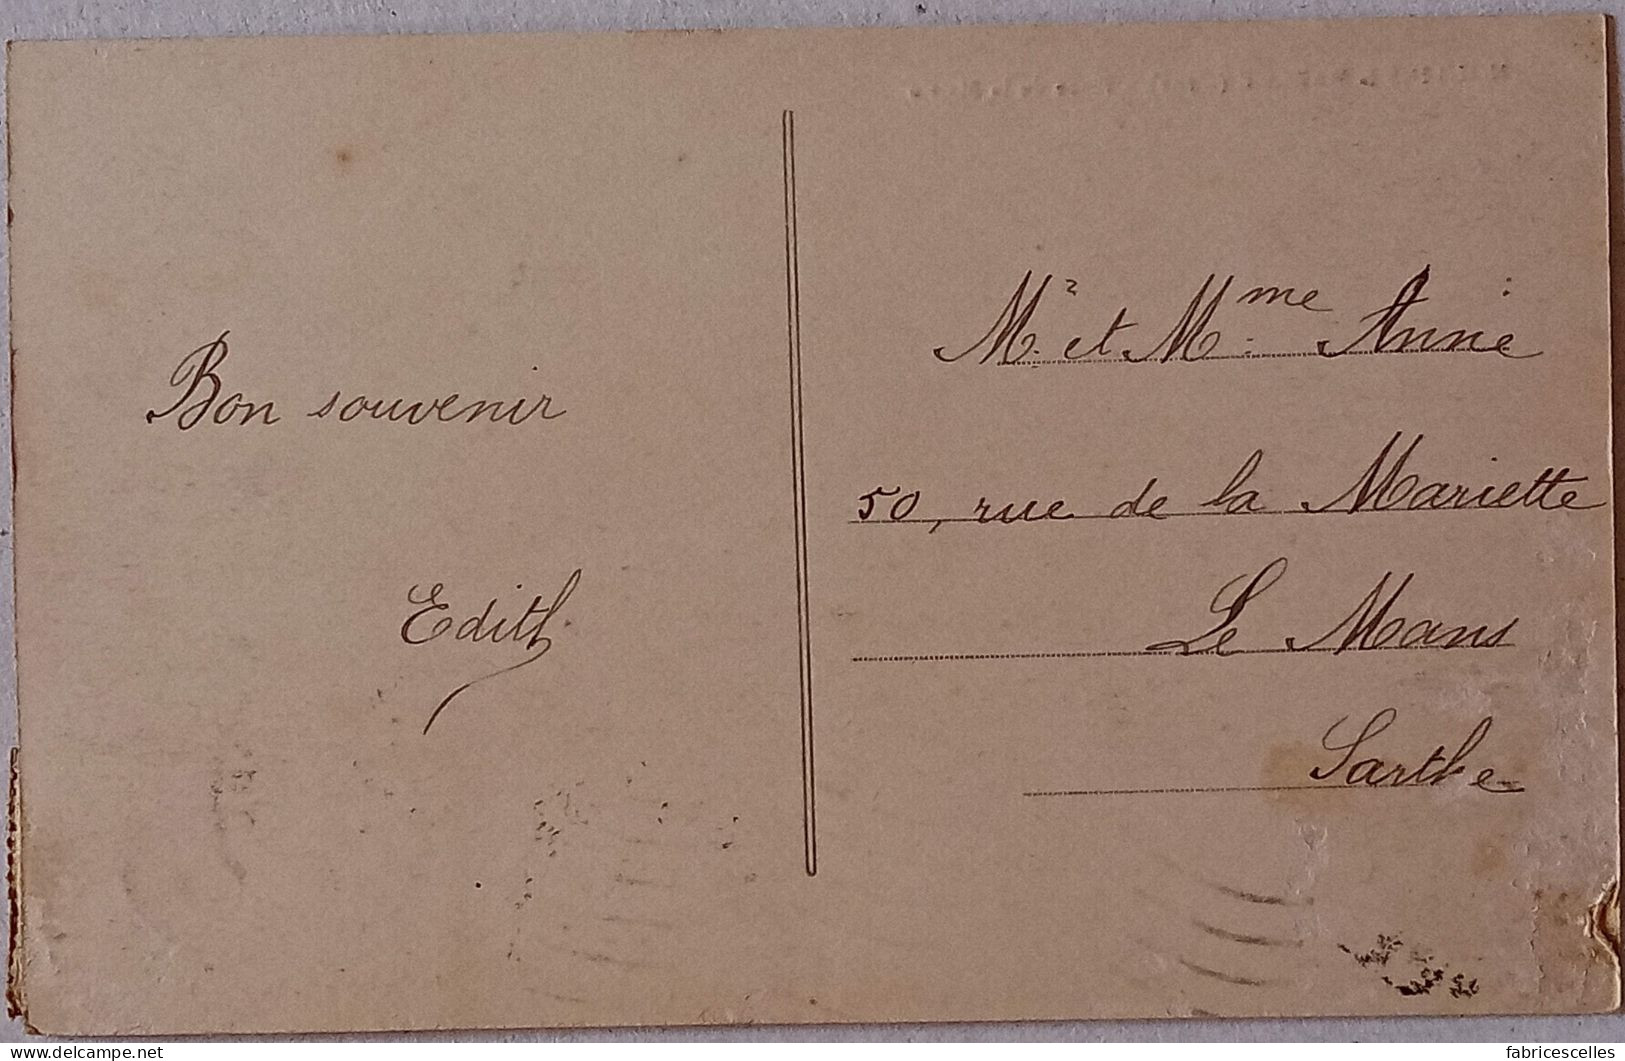 Bon souvenir
Edith
Mr. et Mme. Anne
50, rue de la Mariette
Le Mans
Sarthe
delcampe.net
fabricescelles